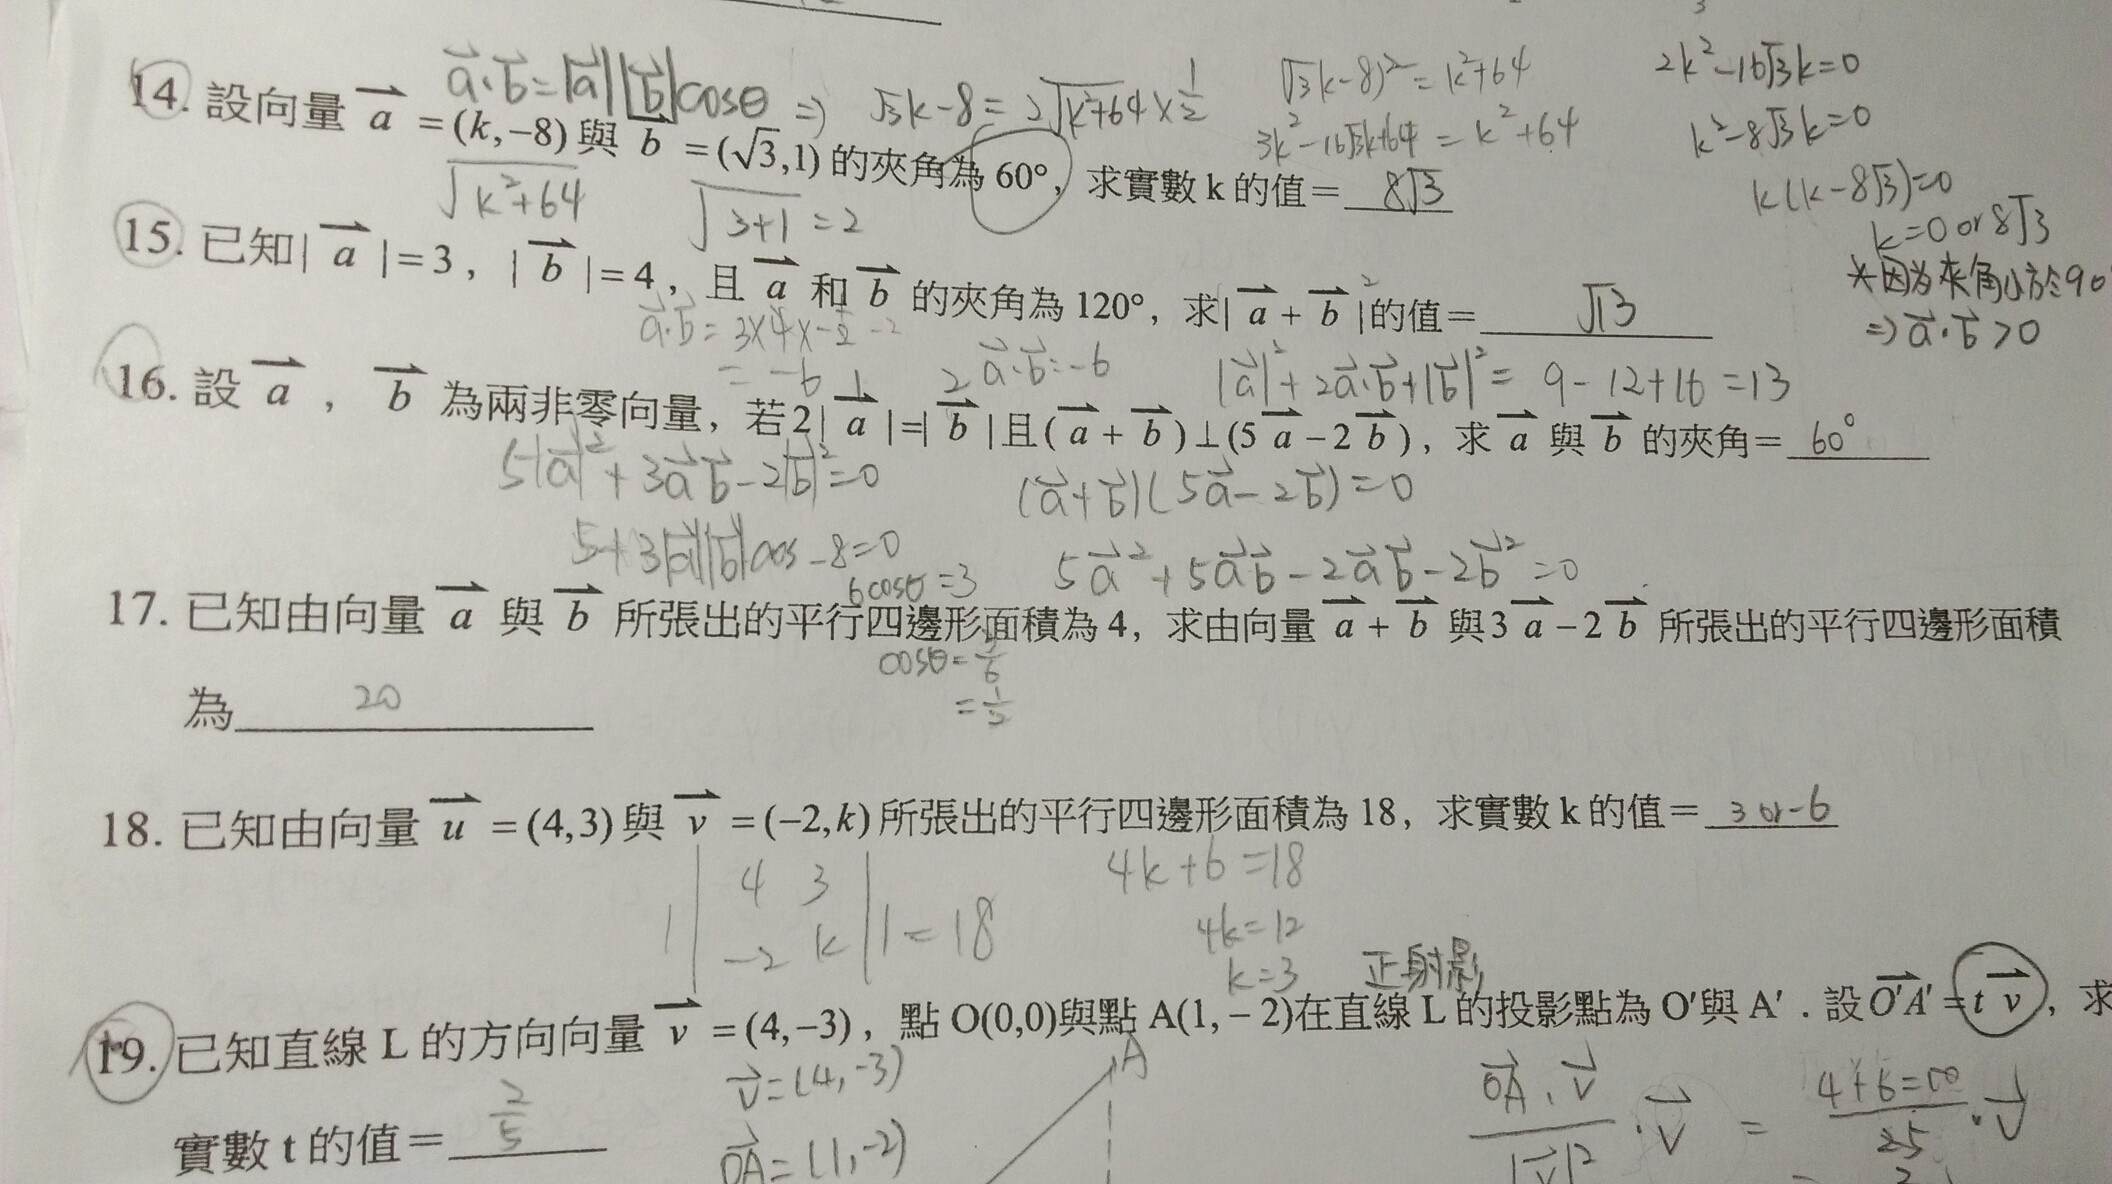 14. 設向量 a = (k, −8) 與 b = (√3, 1) 的夾角為 60°, 求實數 k 的值 = 8√3
a·b = |a||b|cosθ ⇒ √3k − 8 = 2√(k²+64) × 1/2
√3k − 8)² = k² + 64
3k² − 16√3k + 64 = k² + 64
2k² − 16√3k = 0
k² − 8√3k = 0
k(k − 8√3) = 0
k = 0 or 8√3
*因為夾角小於90°
⇒ a·b > 0
√(k²+64)
√(3+1) = 2
15. 已知 |a| = 3, |b| = 4, 且 a 和 b 的夾角為 120°, 求 |a + b|² 的值 = √13
a·b = 3×4×−1/2
= −6
a·b = −6
|a|² + 2a·b + |b|² = 9 − 12 + 16 = 13
16. 設 a, b 為兩非零向量, 若 2|a| = |b| 且 (a + b) ⊥ (5a − 2b), 求 a 與 b 的夾角 = 60°
1 2
5|a|² + 3ab − 2|b|² = 0
(a + b)(5a − 2b) = 0
5 + 3|a||b|cos − 8 = 0
5a² + 5ab − 2ab − 2b² = 0
6cosθ = 3
cosθ = 3/6
= 1/2
17. 已知由向量 a 與 b 所張出的平行四邊形面積為 4, 求由向量 a + b 與 3a − 2b 所張出的平行四邊形面積
為 20
18. 已知由向量 u = (4,3) 與 v = (−2,k) 所張出的平行四邊形面積為 18, 求實數 k 的值 = 3 or −6
4 3
−2 k
= 18
4k + 6 = 18
4k = 12
k = 3
正射影
19. 已知直線 L 的方向向量 v = (4,−3), 點 O(0,0)與點 A(1,−2)在直線 L 的投影點為 O′與 A′. 設 O′A′ = t v, 求
實數 t 的值 = 2/5
v = (4, −3)
OA = (1, −2)
A
OA·v / |v|² · v = 4+6=10 / 25 · v